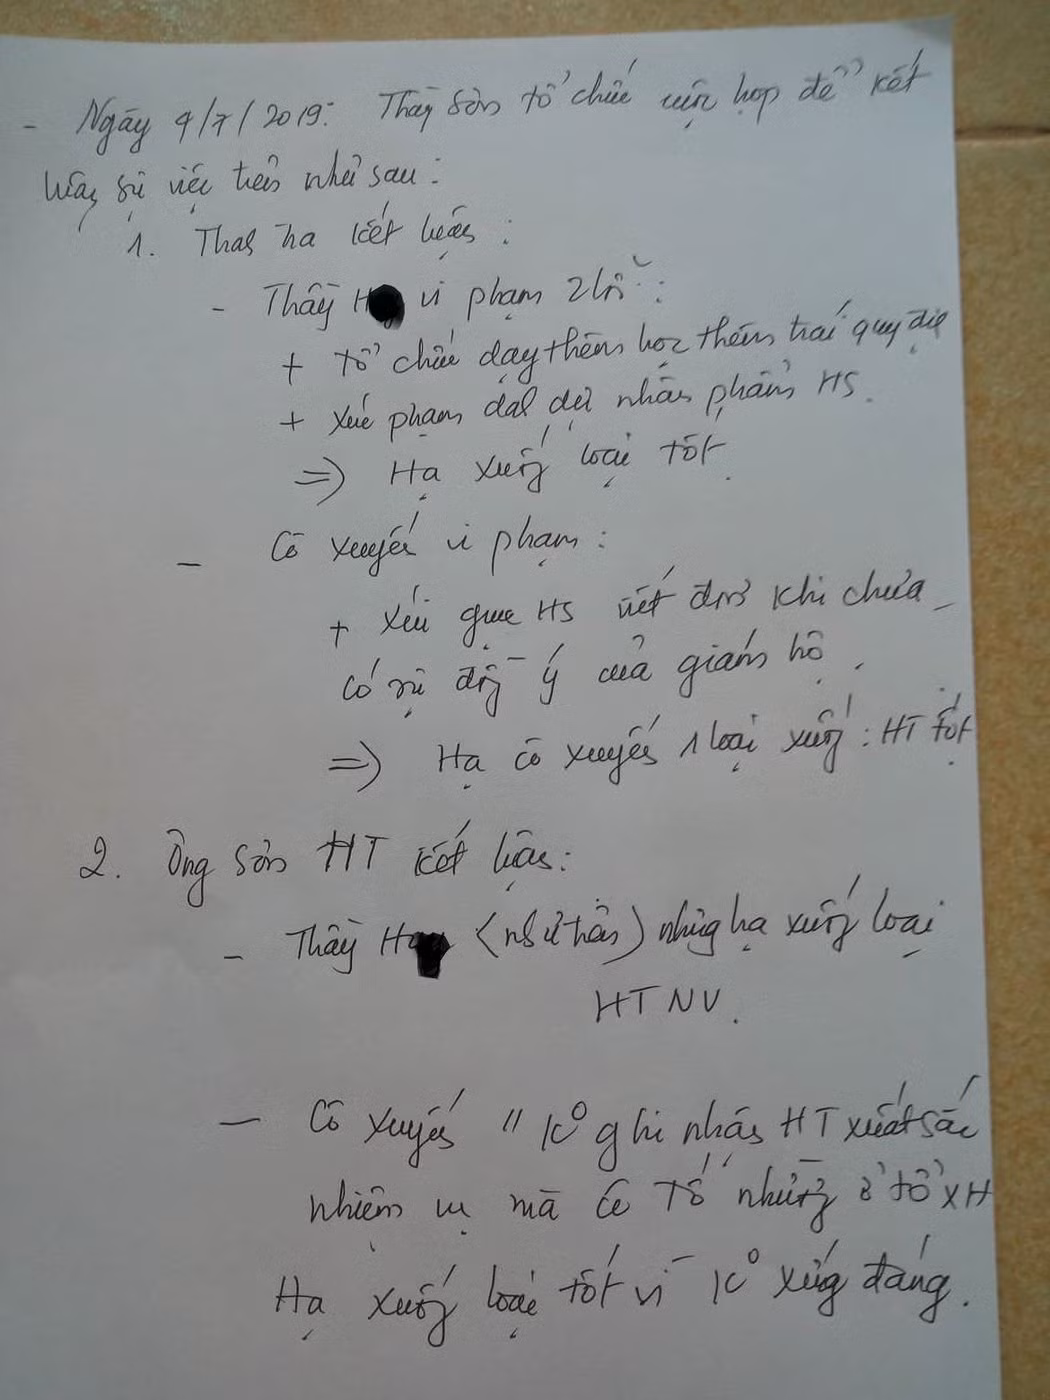 - Ngày 9/7/2019: Thầy Sơn tổ chức cuộc họp để kết
luận sự việc trên như sau:
1. Thanh tra kết luận:
- Thầy H vi phạm 2 lỗi:
+ Tổ chức dạy thêm học thêm trái quy định
+ Xúc phạm danh dự nhân phẩm HS.
=> Hạ xuống loại tốt.
- Cô Xuyến vi phạm:
+ Xúi giục HS viết đơn khi chưa
có sự đồng ý của giám hộ.
=> Hạ cô Xuyến 1 loại xuống: HT tốt
2. Ông Sơn HT kết luận:
- Thầy H (như trên) nhưng hạ xuống loại
HTNV.
- Cô Xuyến " K° ghi nhận HT xuất sắc
nhiệm vụ mà cô Tổ trưởng ở tổ XH
Hạ xuống loại tốt vì K° xứng đáng.